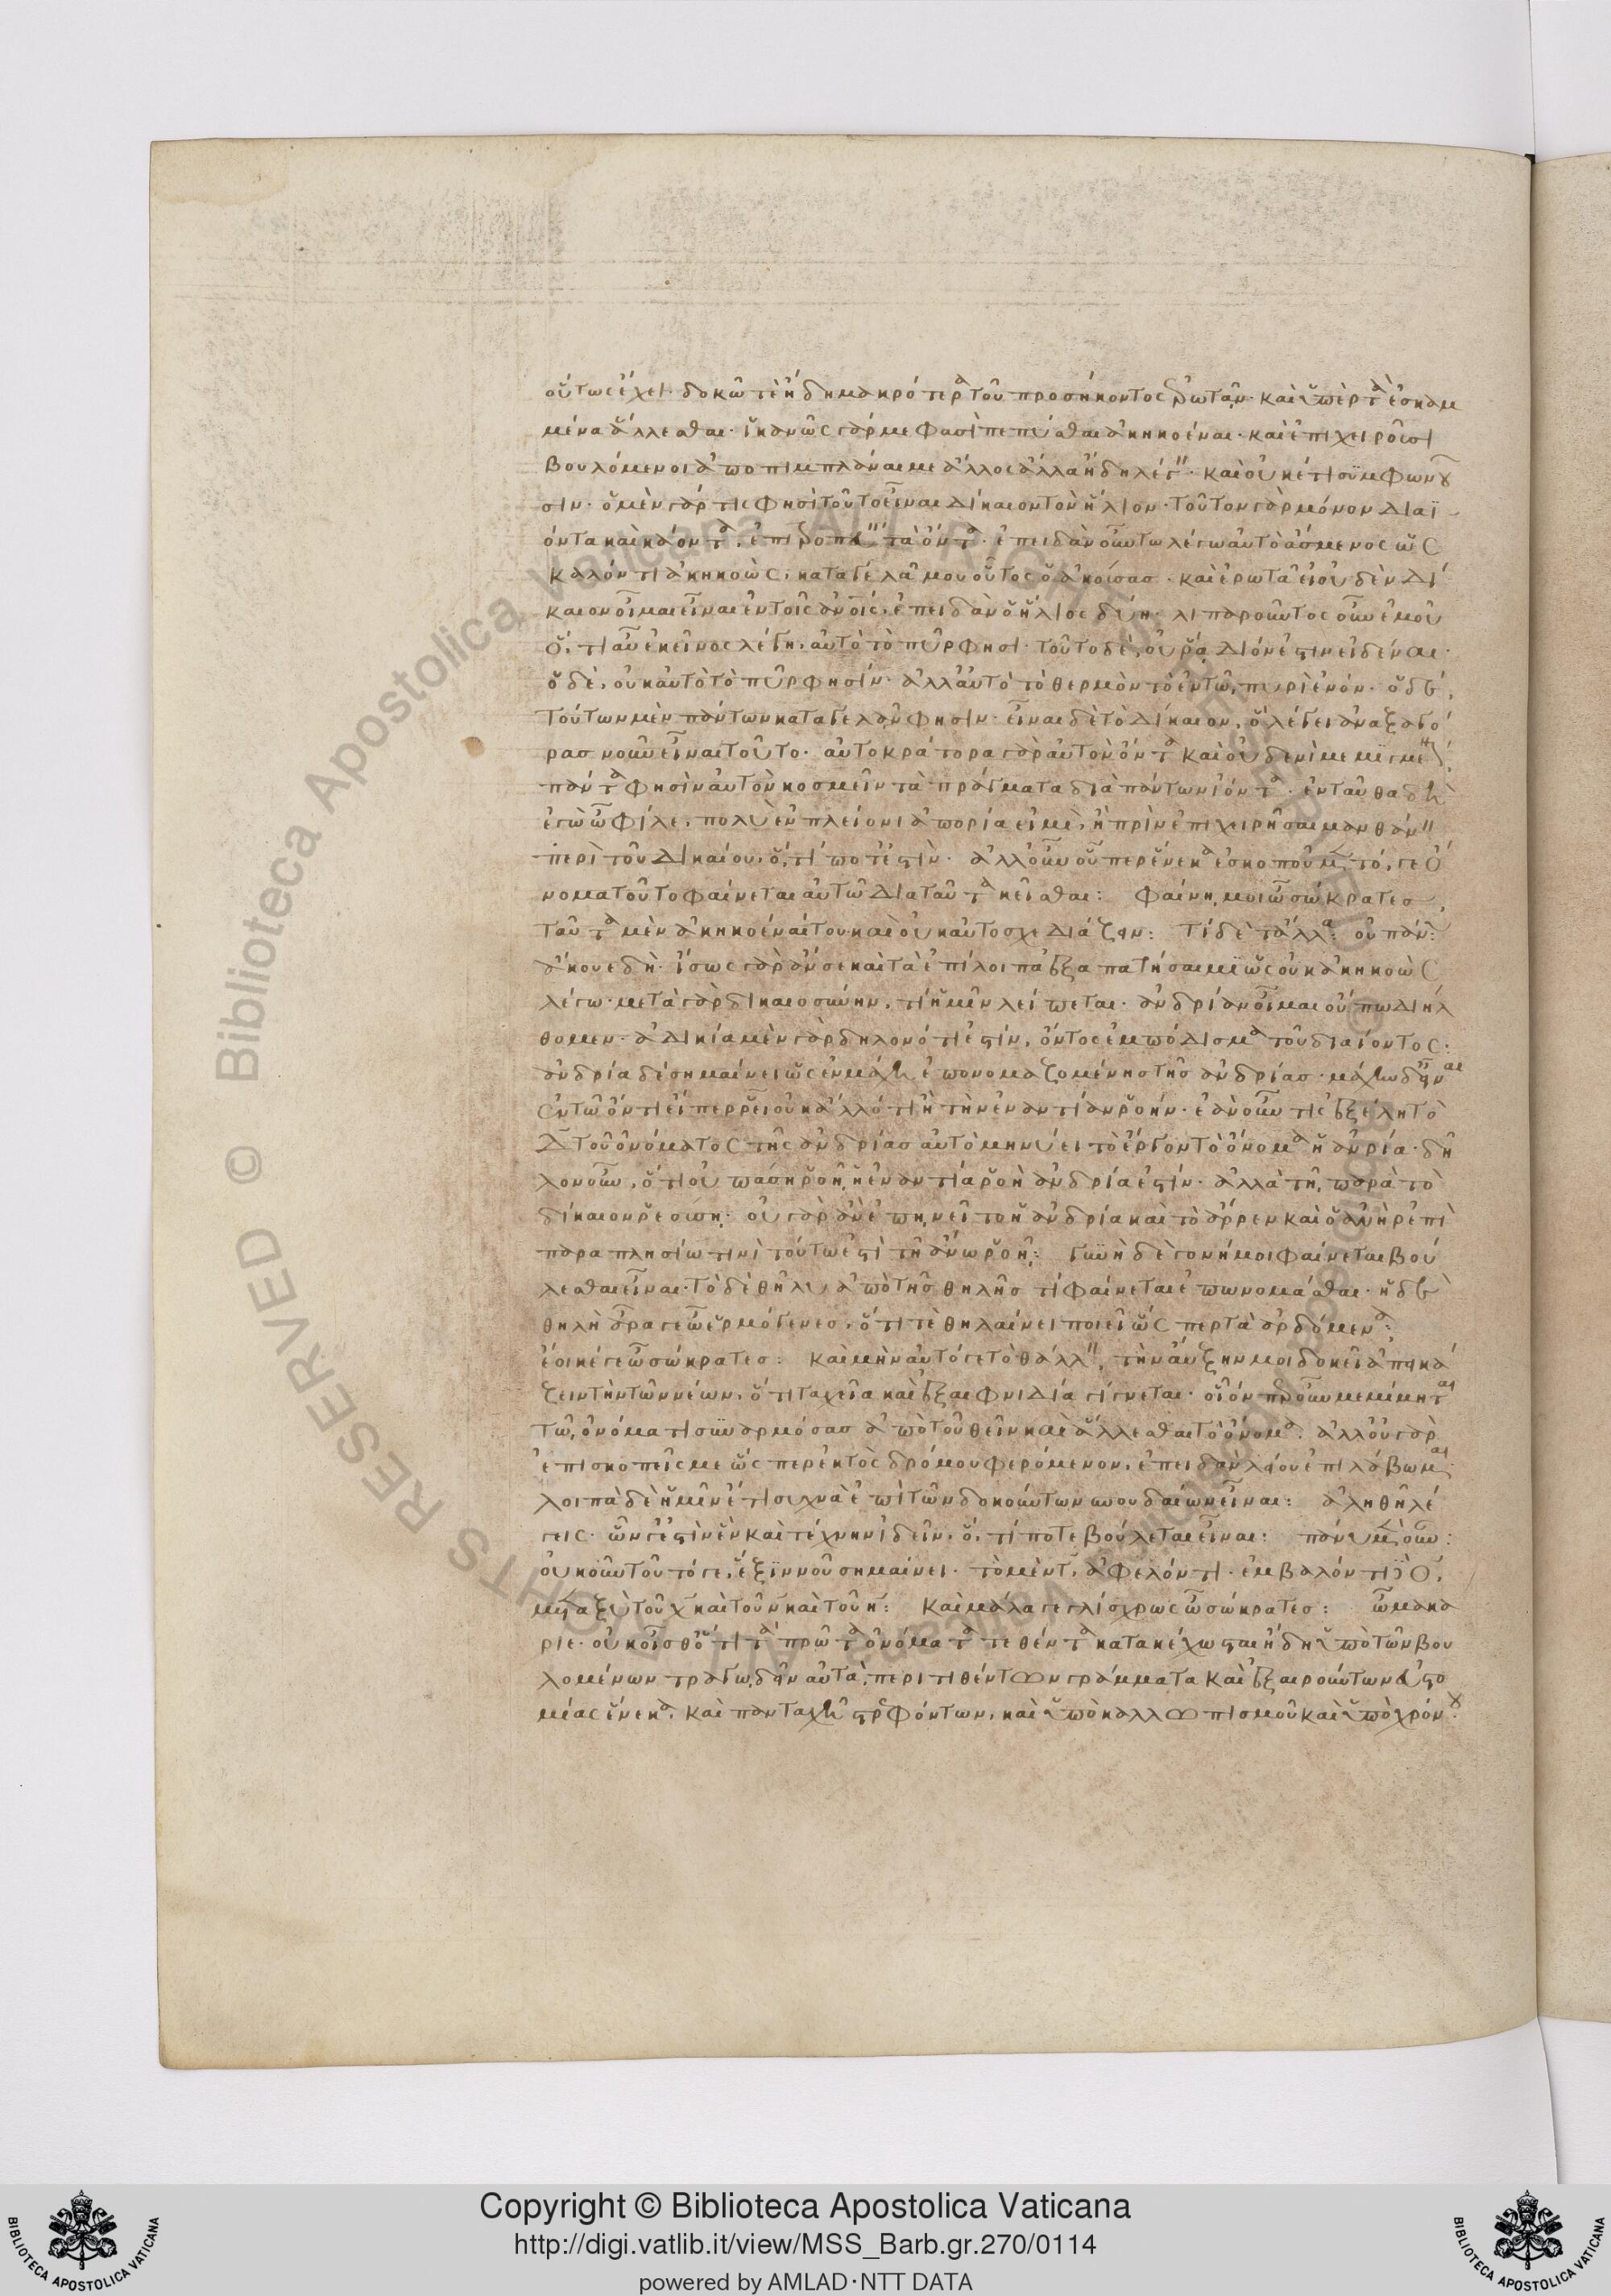 οὕτως ἔχει· δοκῶ τὲ ἤδη μακρότερα τοῦ προσήκοντος ἐρωτᾶν· καὶ ὑπὲρ τὰ ἐσκαμ
μένα ἅλλεσθαι· ἱκανῶς γάρ με φασὶ πεπύσθαι ἀκηκοέναι· καὶ ἐπιχειροῦσι
βουλόμενοι ἀποπιμπλάναι με ἄλλος ἄλλα ἤδη λέγειν· καὶ οὐκέτι συμφωνοῦ
σιν· ὁ μὲν γάρ τις φησὶ τοῦτο εἶναι δίκαιον τὸν ἥλιον· τοῦτον γὰρ μόνον διαϊ
όντα καὶ κάοντα, ἐπιτροπεύειν τὰ ὄντα· ἐπειδὰν οὖν τῳ λέγω αὐτὸ ἄσμενος ὥς
καλόν τι ἀκηκοὼς, καταγελᾶ μου οὗτος ὁ ἀκούσας· καὶ ἐρωτᾶ εἰ οὐδὲν δί
καιον οἶμαι εἶναι ἐν τοῖς ἀνοις, ἐπειδὰν ὁ ἥλιος δύη· λιπαροῦντος οὖν ἐμοῦ
ὅ, τι αὖ ἐκεῖνος λέγη, αὐτὸ τὸ πῦρ φησι· τοῦτο δὲ, οὐ ῥάδιόν ἐστιν εἰδέναι·
ὁ δὲ, οὐκ αὐτὸ τὸ πῦρ φησίν· ἀλλ' αὐτὸ τὸ θερμὸν τὸ ἐν τῶ πυρὶ ἐνόν· ὁ δὲ,
τούτων μὲν πάντων καταγελᾶν φησιν· εἶναι δὲ τὸ δίκαιον, ὃ λέγει ἀναξαγό
ρας νοῦν εἶναι τοῦτο· αὐτοκράτορα γὰρ αὐτὸν ὄντα καὶ οὐδενὶ μεμιγμένον,
πάντα φησὶν αὐτὸν κοσμεῖν τὰ πράγματα διὰ πάντων ἰόντα· ἐνταῦθα δὴ
ἐγὼ ὦ φίλε, πολὺ ἐν πλείονι ἀπορία εἰμὶ, ἢ πρὶν ἐπιχειρῆσαι μανθάνειν
περὶ τοῦ δικαίου, ὅ, τί ποτ' ἐστὶν· ἀλλ' οὖν οὗπερ ἕνεκα ἐσκοποῦμεν, τό, γε ὄ
νομα τοῦτο φαίνεται αὐτῶ διὰ ταῦτα κεῖσθαι: φαίνη μοι ὦ σώκρατες
ταῦτα μὲν ἀκηκοέναι του καὶ οὐκ αὐτοσχεδιάζειν: Τί δὲ τἄλλα: οὐ πάνυ:
ἄκουε δὴ· ἴσως γὰρ ἄν σε καὶ τὰ ἐπίλοιπα ἐξαπατήσαιμι ὡς οὐκ ἀκηκοὼς
λέγω· μετὰ γὰρ δικαιοσύνην, τί ἡμῖν λείπεται· ἀνδρίαν οἶμαι οὔπω διήλ
θομεν· ἀδικία μὲν γὰρ δηλονότι ἐστίν, ὄντος ἐμπόδισμα τοῦ διαϊόντος:
ἀνδρία δέ σημαίνει ὡς ἐν μάχη ἐπονομαζομένης τῆς ἀνδρίας· μάχην δ' εἶναι
ἐν τῶ ὄντι εἴπερ ῥεῖ οὐκ ἄλλό τι ἢ τὴν ἐναντίαν ῥοήν· ἐὰν οὖν τις ἐξέλη τὸ
δ τοῦ ὀνόματος τῆς ἀνδρίας αὐτὸ μηνύει τὸ ἔργον τὸ ὄνομα ἡ ἀνρία· δῆ
λον οὖν, ὅτι οὐ πάση ῥοῆ, ἡ ἐναντία ῥοὴ ἀνδρία ἐστίν· ἀλλὰ τῆ, παρὰ τὸ
δίκαιον ῥεούση· οὐ γὰρ ἂν ἐπηνεῖτο ἡ ἀνδρία καὶ τὸ ἄρρεν καὶ ὁ ἀνὴρ ἐπὶ
παραπλησίω τινὶ τούτω ἐστὶ τῆ ἄνω ῥοῆ: γυνὴ δὲ γονή μοι φαίνεται βού
λεσθαι εἶναι· τὸ δὲ θῆλυ ἀπὸ τῆς θηλῆς τί φαίνεται ἐπωνομάσθαι· ἡ δὲ
θηλὴ ἆρά γε ὦ ἑρμόγενες, ὅτι τὲ θηλαίνει ποιεῖ ὥσπερ τὰ ἀρδόμενα:
ἔοικέ γε ὦ σώκρατες: καὶ μὴν αὐτό γε τὸ θάλλειν, τὴν αὔξην μοι δοκεῖ ἀπεικά
ζειν τὴν τῶν νέων, ὅτι ταχεῖα καὶ ἐξαιφνιδία γίγνεται· οἷόν περ οὖν μεμίμηται
τῶ ὀνόματι συναρμόσας ἀπὸ τοῦ θεῖν καὶ ἅλλεσθαι τὸ ὄνομα: ἀλλ' οὐ γὰρ
ἐπισκοπεῖς με ὥσπερ ἐκτὸς δρόμου φερόμενον, ἐπειδὰν λείου ἐπιλάβωμαι·
λοιπὰ δὲ ἡμῖν ἔτι συχνὰ ἐπὶ τῶν δοκούντων σπουδαίων εἶναι: ἀληθῆ λέ
γεις· ὧν γ' ἐστὶν ἓν καὶ τέχνην ἰδεῖν, ὅ, τί ποτε βούλεται εἶναι: πάνυ μὲν οὖν:
οὐκοῦν τοῦτό γε, ἕξιν νοῦ σημαίνει· τὸ μὲν τ, ἀφελόντι· ἐμβαλόντι δὲ ο,
μεταξὺ τοῦ χ καὶ τοῦ ν καὶ τοῦ η: καὶ μάλα γε γλίσχρως ὦ σώκρατες: ὦ μακά
ριε· οὐκ οἶσθ' ὅτι τὰ πρῶτα ὀνόματα τεθέντα κατακέχωσται ἤδη ὑπὸ τῶν βου
λομένων τραγωδεῖν αὐτὰ, περιτιθέντων γράμματα καὶ ἐξαιρούντων εὐστο
μίας ἕνεκα, καὶ πανταχῆ στρεφόντων, καὶ ὑπὸ καλλωπισμοῦ καὶ ὑπὸ χρόνου·
Copyright © Biblioteca Apostolica Vaticana
http://digi.vatlib.it/view/MSS_Barb.gr.270/0114
powered by AMLAD·NTT DATA